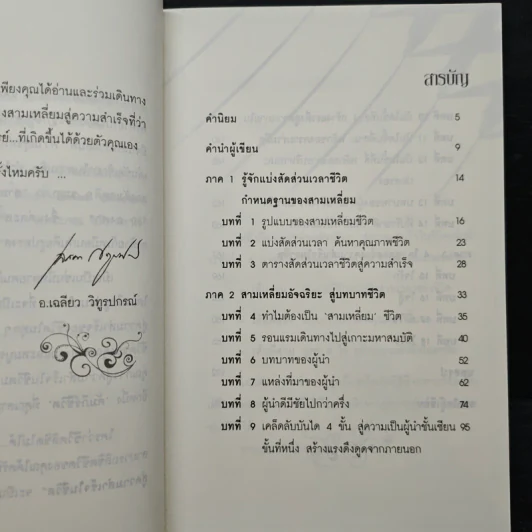 เพียงคุณได้อ่านและร่วมเดินทาง
งสามเหลี่ยมสู่ความสำเร็จที่ว่า
ย์...ที่เกิดขึ้นได้ด้วยตัวคุณเอง
ั้งไหมครับ ...
อ.เฉลียว วิทูรปกรณ์
สารบัญ
คำนิยม 5
คำนำผู้เขียน 9
ภาค 1 รู้จักแบ่งสัดส่วนเวลาชีวิต 14
กำหนดฐานของสามเหลี่ยม
บทที่ 1 รูปแบบของสามเหลี่ยมชีวิต 16
บทที่ 2 แบ่งสัดส่วนเวลา ค้นหาคุณภาพชีวิต 23
บทที่ 3 ตารางสัดส่วนเวลาชีวิตสู่ความสำเร็จ 28
ภาค 2 สามเหลี่ยมอัจฉริยะ สู่บทบาทชีวิต 33
บทที่ 4 ทำไมต้องเป็น 'สามเหลี่ยม' ชีวิต 35
บทที่ 5 รอนแรมเดินทางไปสู่เกาะมหาสมบัติ 40
บทที่ 6 บทบาทของผู้นำ 52
บทที่ 7 แหล่งที่มาของผู้นำ 62
บทที่ 8 ผู้นำดีมีชัยไปกว่าครึ่ง 74
บทที่ 9 เคล็ดลับบันได 4 ขั้น สู่ความเป็นผู้นำชั้นเซียน 95
ขั้นที่หนึ่ง สร้างแรงดึงดูดจากภายนอก